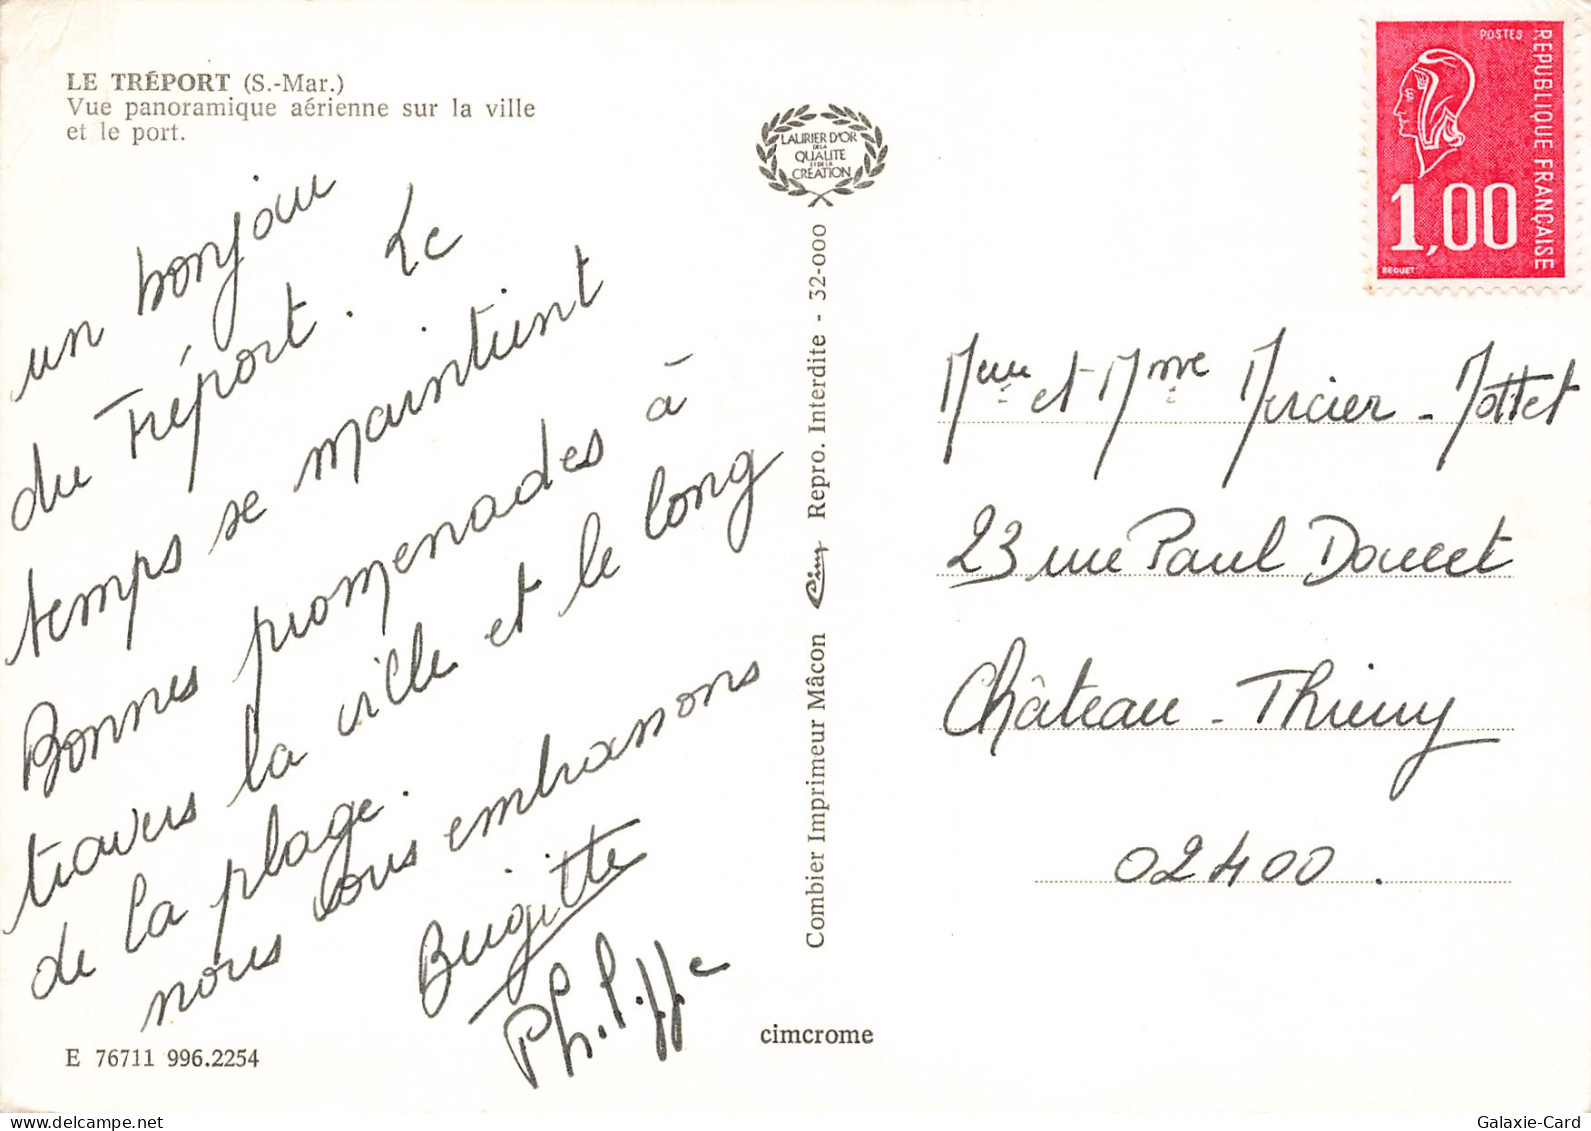 LE TRÉPORT (S.-Mar.)
Vue panoramique aérienne sur la ville
et le port.
un bonjour
du Tréport. Le
temps se maintient
Bonnes promenades à
travers la ville et le long
de la plage.
nous vous embrassons
Brigitte
Philippe
E 76711 996.2254
LAURIER D'OR
DE LA
QUALITE
ET DE LA
CREATION
Combier Imprimeur Mâcon Cim Repro. Interdite - 32-000
cimcrome
POSTES
REPUBLIQUE FRANÇAISE
1,00
BEQUET
et Mme Mercier - Mottet
23 rue Paul Doucet
Château-Thierry
02400.
Galaxie-Card